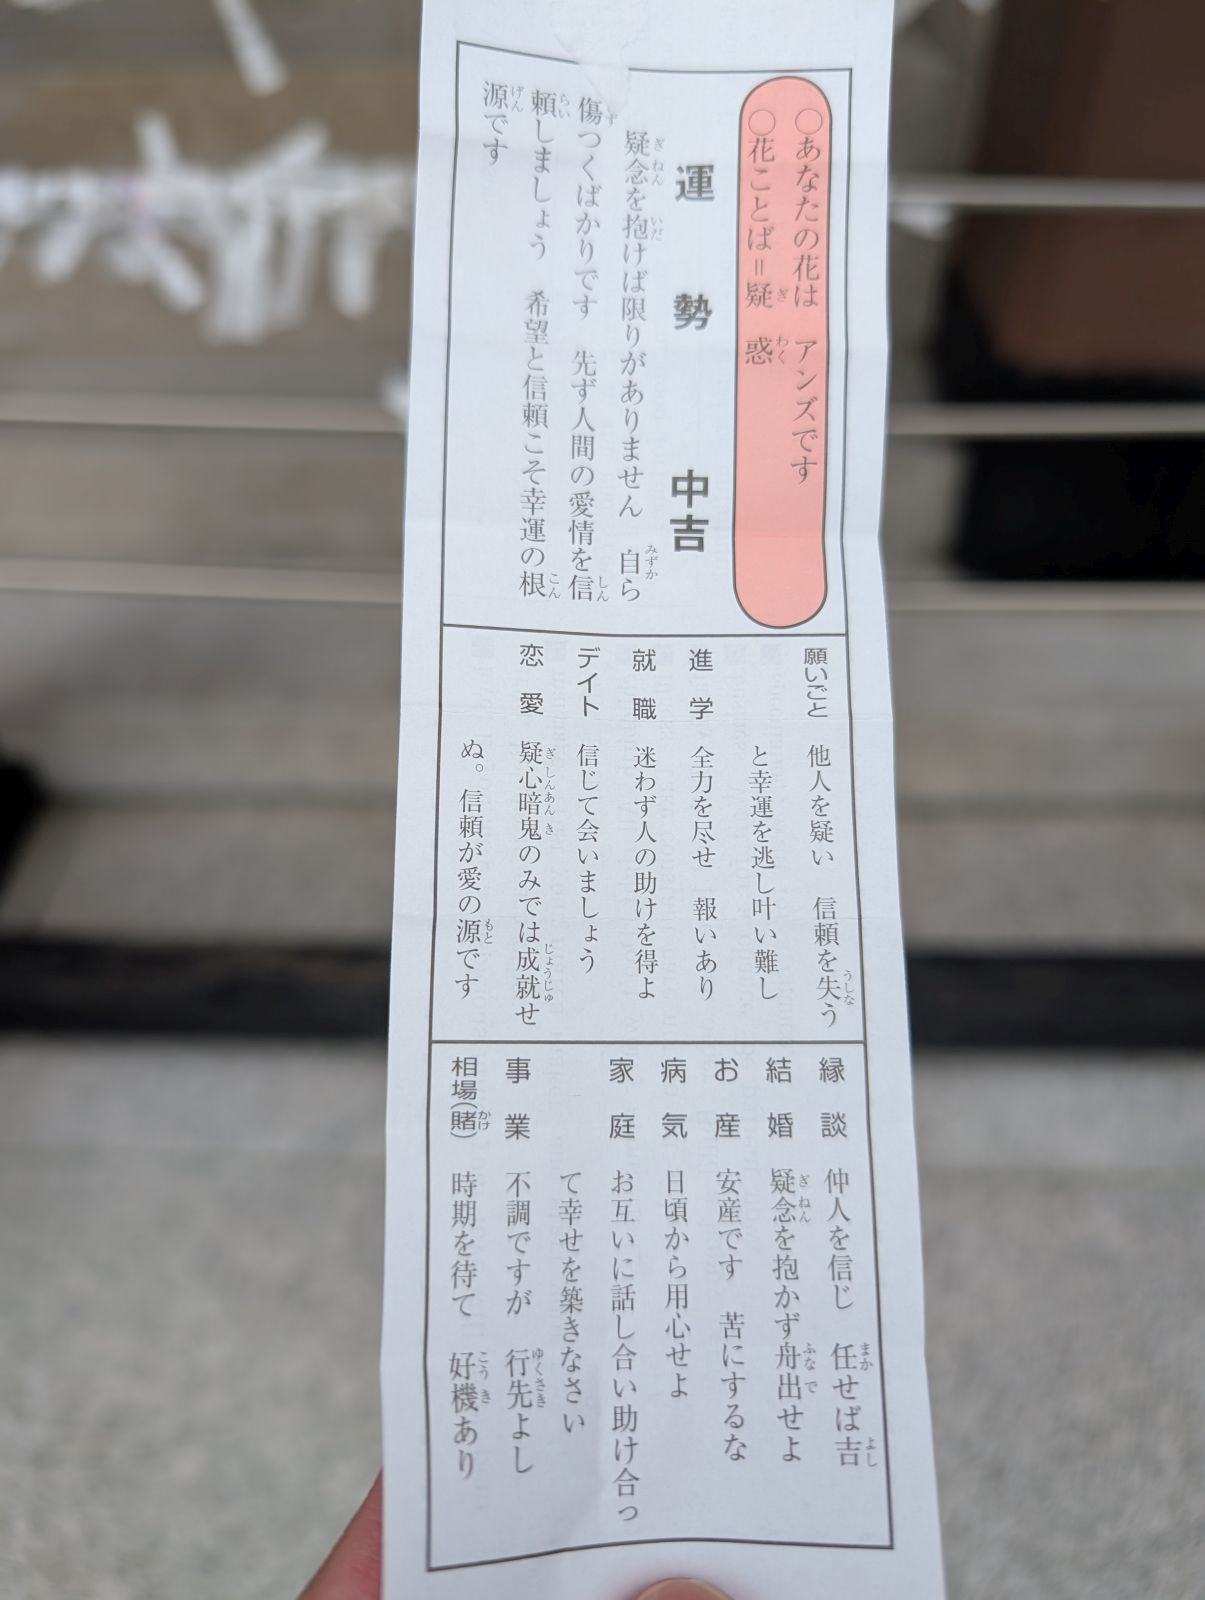 ○あなたの花は アンズです
○花ことば＝疑惑
運勢 中吉
疑念を抱けば限りがありません 自ら
傷つくばかりです 先ず人間の愛情を信
頼しましょう 希望と信頼こそ幸運の根
源です
願いごと 他人を疑い 信頼を失う
と幸運を逃し叶い難し
進学 全力を尽せ 報いあり
就職 迷わず人の助けを得よ
デイト 信じて会いましょう
恋愛 疑心暗鬼のみでは成就せ
ぬ。信頼が愛の源です
縁談 仲人を信じ 任せば吉
結婚 疑念を抱かず舟出せよ
お産 安産です 苦にするな
病気 日頃から用心せよ
家庭 お互いに話し合い助け合っ
て幸せを築きなさい
事業 不調ですが 行先よし
相場(賭) 時期を待て 好機あり